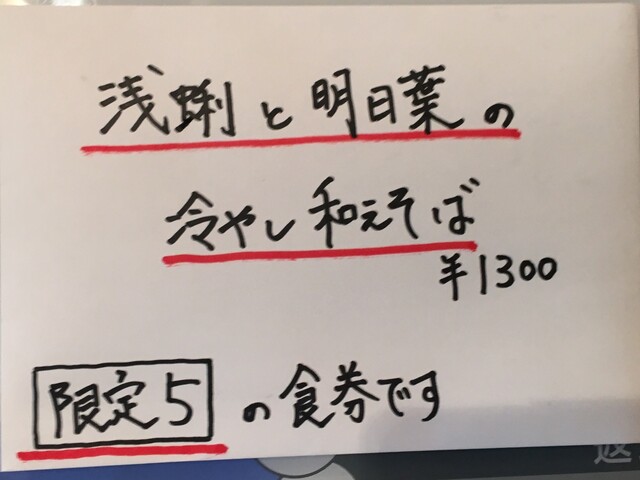 浅蜊と明日葉の
冷やし和えそば
¥1300
限定5の食券です
返